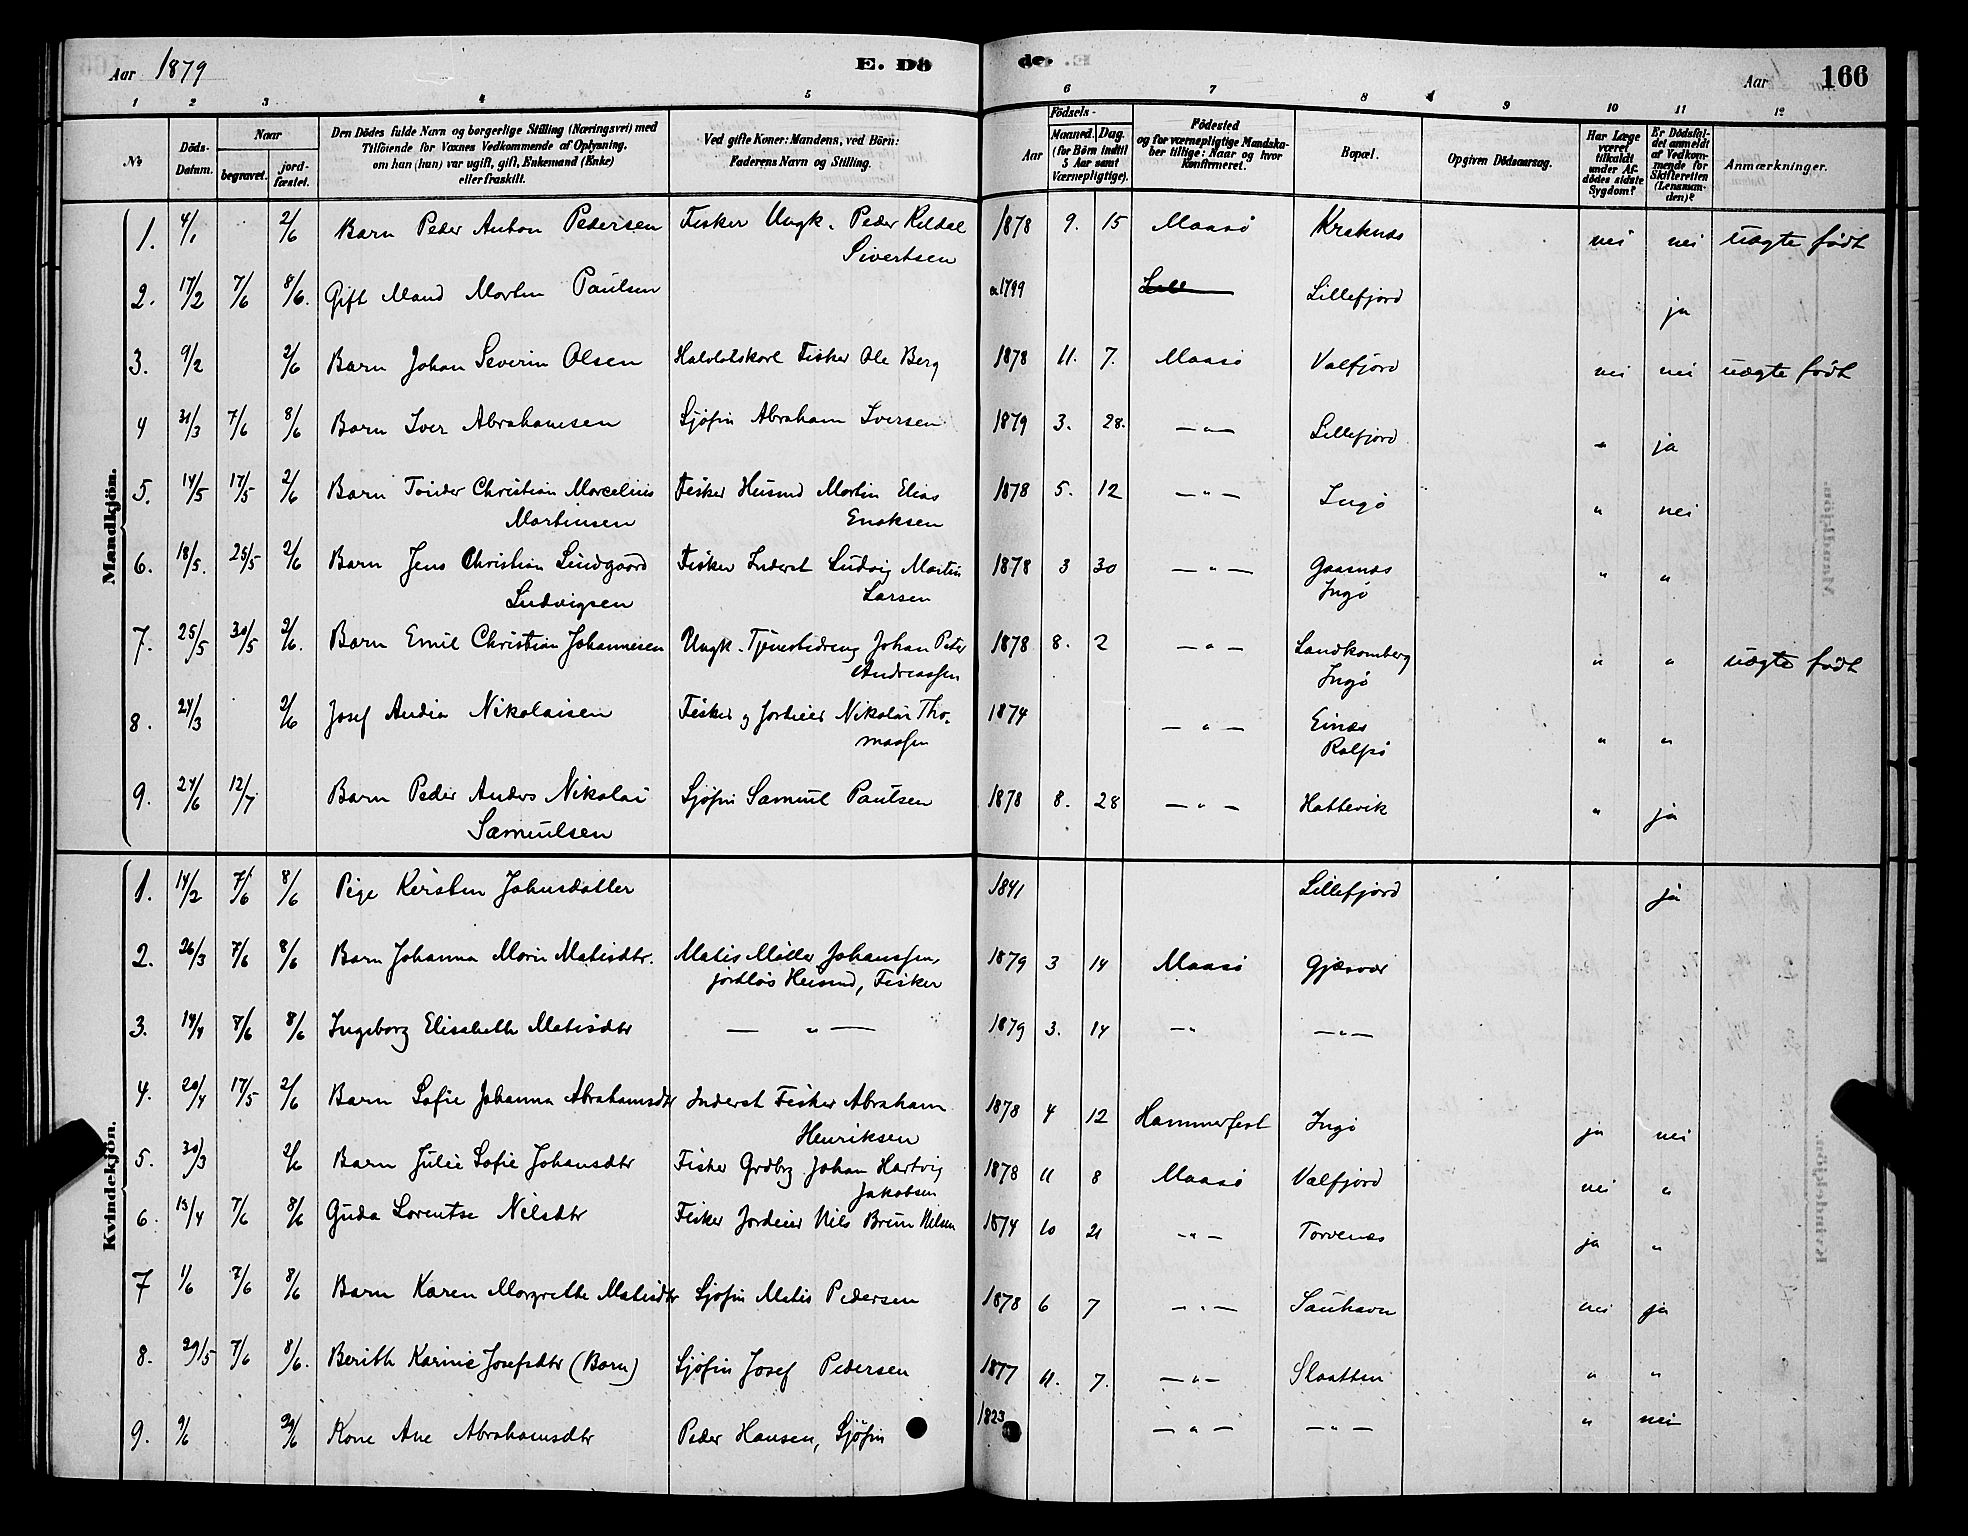 Aar 1879
E. Dö
de.
Aar
166
1 2 3 4 5 6 7 8 9 10 11 12
No
Döds-Datum.
Naar
begravet.
jord-fæstet.
Den Dödes fulde Navn og borgerlige Stilling (Næringsvei) med
Tilföiende for Voxnes Vedkommende af Oplysning,
om han (hun) var ugift, gift, Enkemand (Enke)
eller fraskilt.
Ved gifte Koner: Mandens, ved Börn:
Faderens Navn og Stilling.
Födsels-
Aar
Maaned. Dag.
(for Börn indtil 5 Aar samt Værnepligtige).
Födested
og for værnepligtige Mandskaber tillige: Naar og hvor Konfirmeret.
Bopæl.
Opgiven Dödsaarsag.
Har Læge været tilkaldt under Afdödes sidste Sygdom?
Er Dödsfaldet anmeldt af Vedkommende for Skifteretten (Lensmanden)?
Anmærkninger.
Mandkjön.
1. 4/1 2/6 Barn Peder Anton Pedersen Fisker Ungk. Peder Kildal 1878 9. 15 Maasø Kraknæs nei nei uægte født
Sivertsen
2. 17/2 7/6 8/6. Gift Mand Morten Paulsen 1799 Lillefjord ja
3. 9/2 2/6 Barn Johan Severin Olsen Fisker Ole Berg 1878 11. 7. Maasø Valfjord nei nei uægte født
4 31/3 7/6 8/6 Barn Iver Abrahamsen Sjøfin Abraham Iversen 1879 3. 28. — " — Lillefjord " ja
5. 14/5 17/5 2/6 Barn Christian Marcelius Fisker Husmd Martin Elias 1878 5. 12 — " — Ingø " nei
Martinsen Enoksen
6. 18/5. 25/5 2/6 Barn Jens Christian Lindgaard Fisker Inderst Ludvig Martin 1878 3 30 — " — Gaasnæs " "
Ludvigsen Larsen Ingø
7. 25/5 30/5 2/6. Barn Emil Christian Johannesen Ungk. Tjenestedreng Johan Peter 1878 8. 2 — " — Sandkomberg " " uægte født
Andreassen Ingø
8. 24/3 2/6 Josef Andia Nikolaisen Fisker og Jordeier Nikolai Tho- 1874 — " — Einæs " "
massen Rolfsø
9. 24/6 12/7 Barn Peder Anders Nikolai Sjøfin Samuel Paulsen 1878 8. 28 — " — Hattevik " ja
Samuelsen
Kvindekjön.
1. 14/2 7/6 8/6 Pige Kersten Johnsdatter 1841 Lillefjord ja
2. 26/3 7/6 8/6 Barn Johanna Marie Matisdtr. Matis Møller Johanssen, 1879 3 14 Maasø Gjæsvær
jordløs Husmd, Fisker
3. 14/4 7/6 8/6 Ingeborg Elisabeth Matisdtr — " — 1879 3. 14 — " — " —
4. 20/4 17/5 2/6 Barn Sofie Johanna Abrahamsdtr Inderst Fisker Abraham 1878 4 12 Hammerfest Ingø ja nei
Henriksen
5. 30/3 2/6 Barn Julie Sofie Johansdtr Fisker Grdbrg Johan Hartvig 1878 11 8 Maasø Valfjord nei "
Jakobsen
6. 15/4 7/6 8/6 Guda Lorentse Nilsdtr Fisker Jordeier Nils Brun Nilsen 1874 10 21 — " — Torvenæs ja "
7 1/6 7/6 8/6 Barn Karen Margrethe Matisdtr Sjøfin Matis Pedersen 1878 6 7 — " — Sauhavn nei ja
8. 29/5 7/6 8/6. Berith Karine Josefsdtr (Barn) Sjøfin Josef Pedersen 1877 11. 7. — " — Slaatten " "
9. 9/6 29/6 Kone Ane Abrahamsdtr Peder Hansen, Sjøfin 1823 — " — — " — " nei